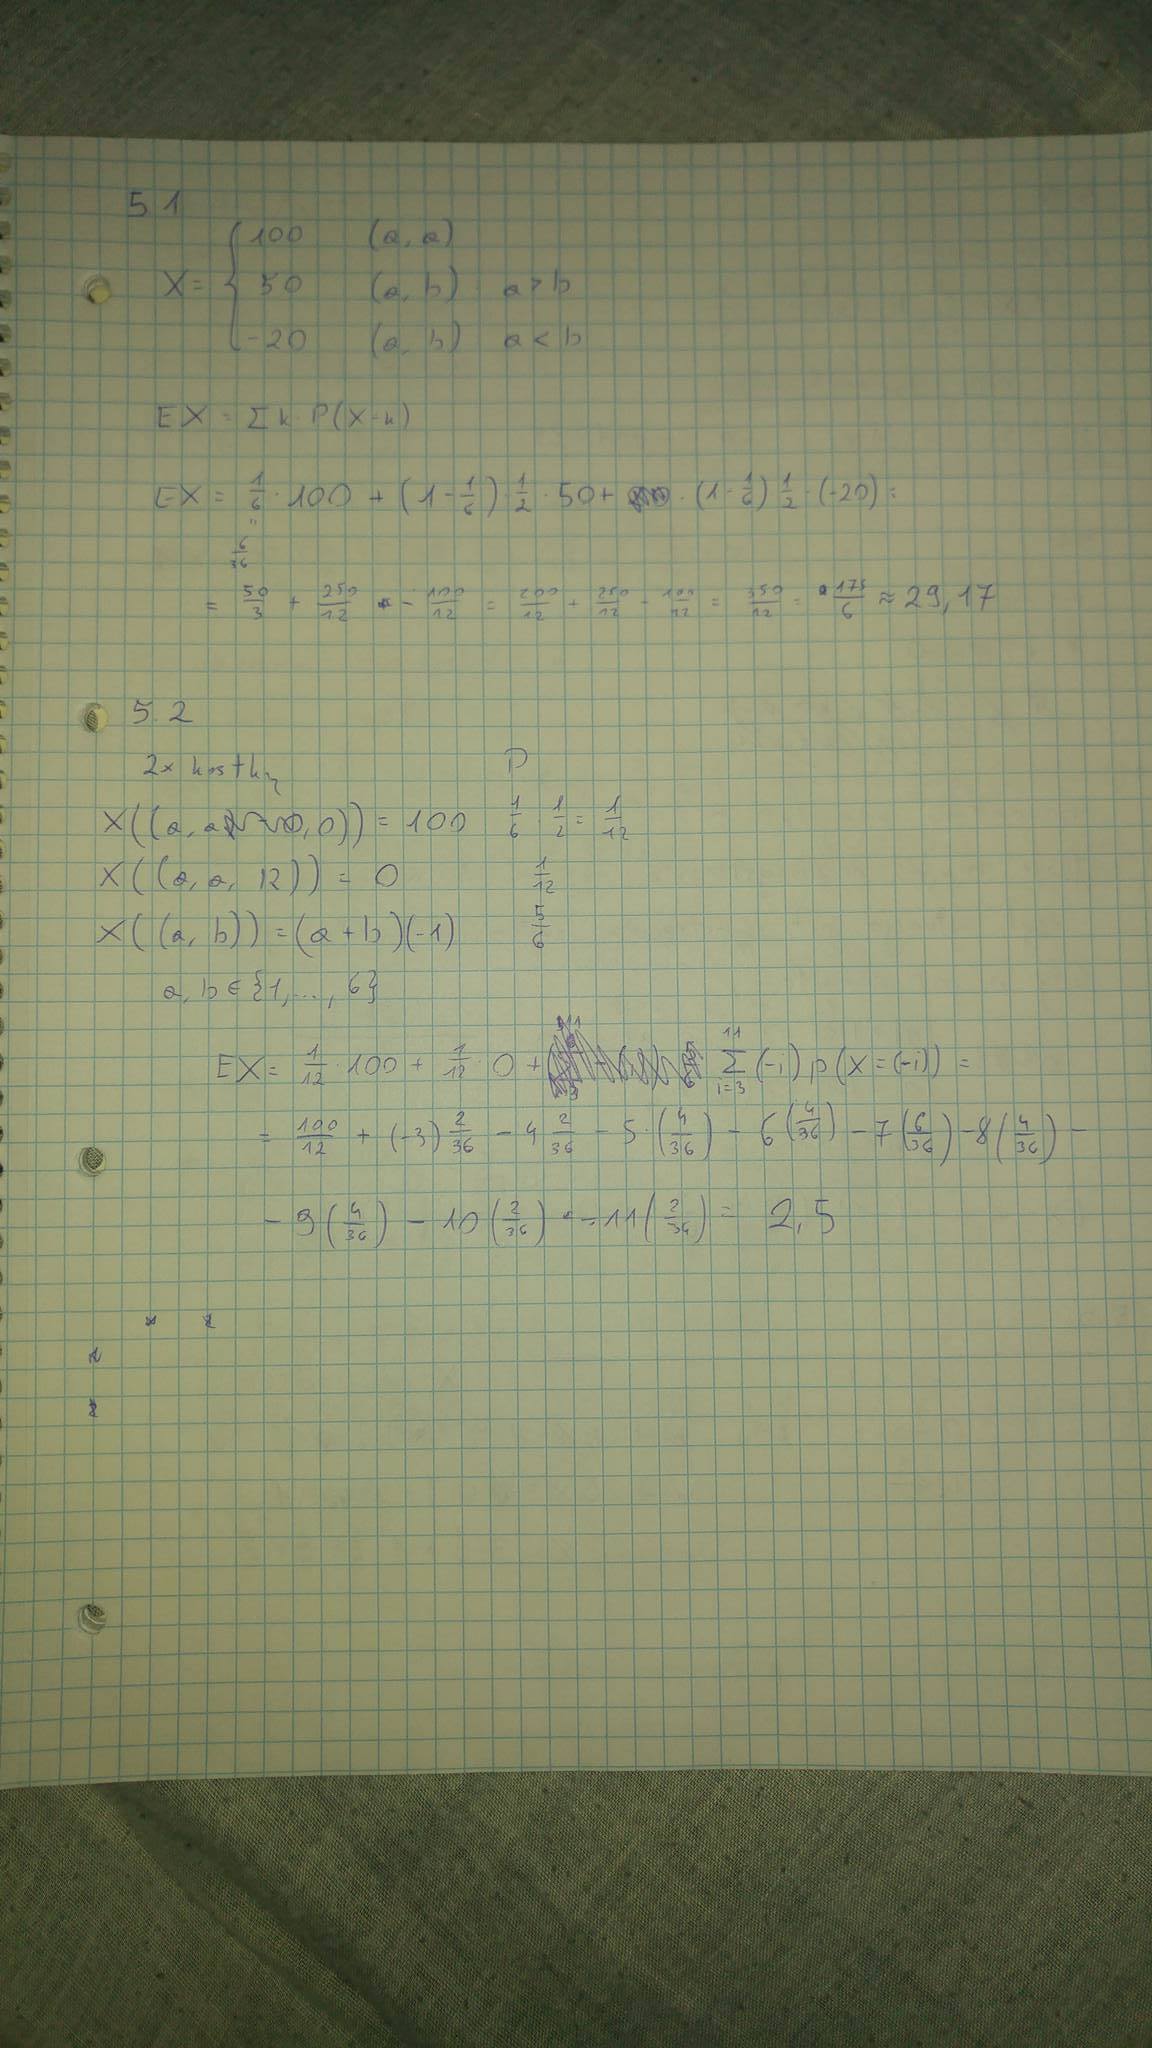 5.1
X = { 100 (a, a)
50 (a, b) a > b
-20 (a, b) a < b
EX = Σ k · P(X=k)
EX = 1/6 · 100 + (1 - 1/6) · 1/2 · 50 + · (1 - 1/6) 1/2 · (-20) =
" 6/36
= 50/3 + 250/12 - 100/12 = 200/12 + 250/12 - 100/12 = 350/12 = 175/6 ≈ 29,17
5.2
2x kostky P
X((a, a, 0)) = 100 1/6 · 1/2 = 1/12
X((a, a, 12)) = 0 1/12
X((a, b)) = (a + b)(-1) 5/6
a, b ∈ {1, ..., 6}
EX = 1/12 · 100 + 1/12 · 0 + Σ_{i=3}^{11} (-i) p(X = (-i)) =
= 100/12 + (-3) 2/36 - 4 2/36 - 5 · (4/36) - 6 (4/36) - 7 (6/36) - 8 (4/36) -
- 9 (4/36) - 10 (2/36) - 11 (2/36) = 2,5